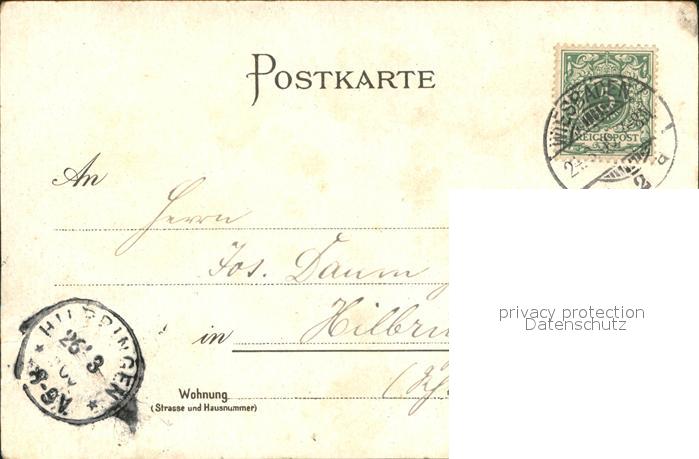 POSTKARTE
WIESBADEN
REICHSPOST
2
An
Herrn
Jos. Daum
in Hilbrin
HILBRINGEN
26 3
Wohnung
(Strasse und Hausnummer)
privacy protection
Datenschutz